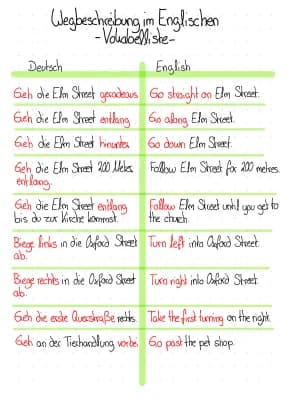 Wegbeschreibung im Englischen
-Vokabelliste-
Deutsch English
Geh die Elm Street geradeaus. Go straight on Elm Street.
Geh die Elm Street entlang. Go along Elm Street.
Geh die Elm Street hinunter. Go down Elm Street.
Geh die Elm Street 200 Meter Follow Elm Street for 200 metres.
entlang.
Geh die Elm Street entlang Follow Elm Street until you get to
bis du zur Kirche kommst. the church.
Biege links in die Oxford Street Turn left into Oxford Street.
ab.
Biege rechts in die Oxford Street Turn right into Oxford Street.
ab.
Geh die erste Querstraße rechts. Take the first turning on the right.
Geh an der Tierhandlung vorbei. Go past the pet shop.